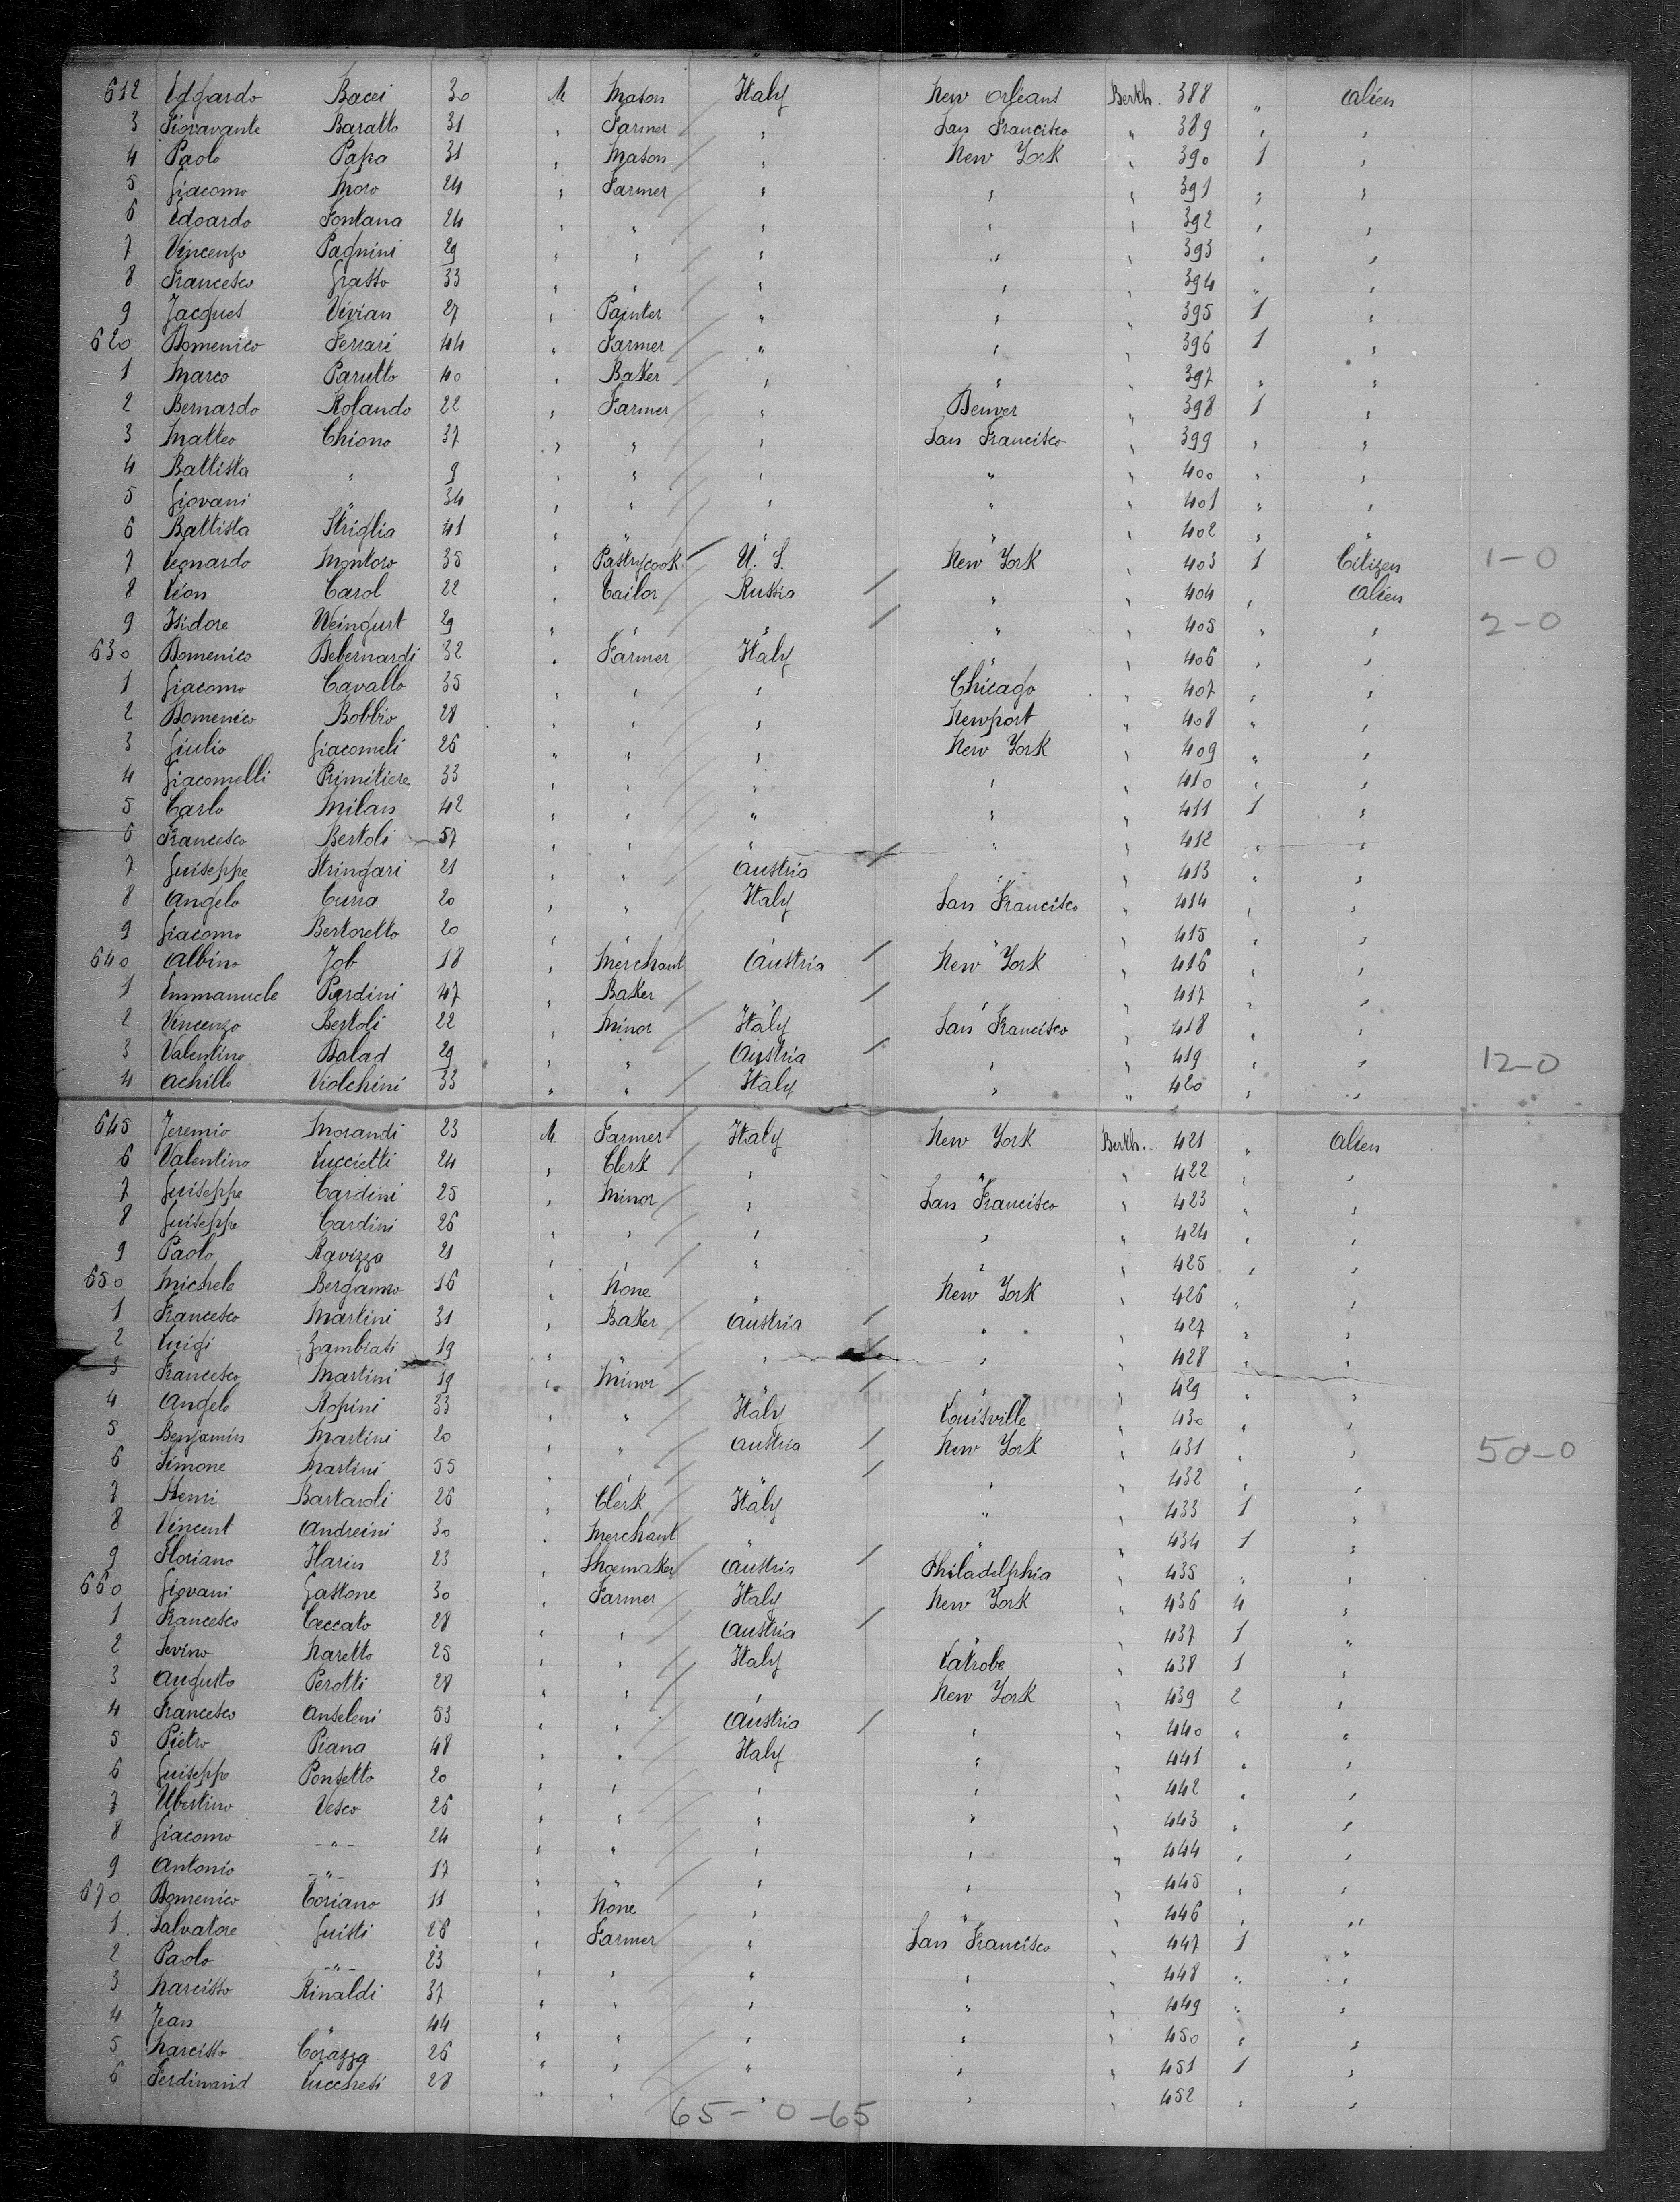 612 Edgardo Bacci 30 M Mason Italy New Orleans Berth. 388 " Alien
3 Fioravante Baratto 31 " Farmer " San Francisco " 389 " "
4 Paolo Papa 31 " Mason " New York " 390 1 "
5 Giacomo Moro 24 " Farmer " " " 391 " "
6 Edoardo Fontana 24 " " " " " 392 " "
7 Vincenzo Pagnini 29 " " " " " 393 " "
8 Francesco Grasso 33 " " " " " 394 " "
9 Jacques Vivian 27 " Painter " " " 395 1 "
620 Domenico Ferrari 44 " Farmer " " " 396 1 "
1 Marco Parutto 40 " Baker " " " 397 " "
2 Bernardo Rolando 22 " Farmer " Denver " 398 1 "
3 Matteo Chiono 37 " " " San Francisco " 399 " "
4 Battista " 9 " " " " " 400 " "
5 Giovani " 34 " " " " " 401 " "
6 Battista Striglia 41 " " " " " 402 " "
7 Leonardo Montoro 35 " Pastrycook U. S. New York " 403 1 Citizen 1-0
8 Léon Carol 22 " Tailor Russia " " 404 " Alien
9 Isidore Weingurt 29 " " " " " 405 " " 2-0
630 Domenico Debernardi 32 " Farmer Italy " " 406 " "
1 Giacomo Cavallo 35 " " " Chicago " 407 " "
2 Domenico Bobbio 28 " " " Newport " 408 " "
3 Giulio Giacomeli 26 " " " New York " 409 " "
4 Giacomelli Primitiere 33 " " " " " 410 " "
5 Carlo Milan 42 " " " " " 411 1 "
6 Francesco Bertoli 57 " " " " " 412 " "
7 Guiseppe Stringari 21 " " Austria " " 413 " "
8 Angelo Curra 20 " " Italy San Francisco " 414 " "
9 Giacomo Bertoretto 20 " " " " " 415 " "
640 Albino Job 18 " Merchant Austria New York " 416 " "
1 Emmanuele Pardini 47 " Baker " " " 417 " "
2 Vincenzo Bertoli 22 " Minor Italy San Francisco " 418 " "
3 Valentino Balad 29 " " Austria " " 419 " " 12-0
4 Achille Violchini 33 " " Italy " " 420 " "
645 Jeremio Morandi 23 M Farmer Italy New York Berth. 421 " Alien
6 Valentino Luccietti 24 " Clerk " " " 422 " "
7 Guiseppe Cardini 25 " Minor " San Francisco " 423 " "
8 Guiseppe Cardini 26 " " " " " 424 " "
9 Paolo Ravizza 21 " " " " " 425 " "
650 Michele Bergamo 16 " None " New York " 426 " "
1 Francesco Martini 31 " Baker Austria " " 427 " "
2 Luigi Zambiasi 19 " " " " " 428 " "
3 Francesco Martini 19 " Minor " " " 429 " "
4 Angelo Ropini 33 " " Italy Louisville " 430 " "
5 Benjamin Martini 20 " " Austria New York " 431 " " 50-0
6 Simone Martini 55 " " " " " 432 " "
7 Henri Bartaroli 26 " Clerk Italy " " 433 1 "
8 Vincent Andreini 30 " Merchant " " " 434 1 "
9 Floriano Ilarin 23 " Shoemaker Austria Philadelphia " 435 " "
660 Giovani Gastone 30 " Farmer Italy New York " 436 4 "
1 Francesco Ceccato 28 " " Austria " " 437 1 "
2 Sevino Naretto 25 " " Italy Latrobe " 438 1 "
3 Augusto Perotti 28 " " " New York " 439 2 "
4 Francesco Anseleni 53 " " Austria " " 440 " "
5 Pietro Piana 48 " " Italy " " 441 " "
6 Guiseppe Ponsetto 20 " " " " " 442 " "
7 Ubertino Vesco 26 " " " " " 443 " "
8 Giacomo -"- 24 " " " " " 444 " "
9 Antonio -"- 17 " " " " " 445 " "
670 Domenico Coriano 11 " None " " " 446 " "
1 Salvatore Guisti 28 " Farmer " San Francisco " 447 1 "
2 Paolo -"- 23 " " " " " 448 " "
3 Narcisso Rinaldi 37 " " " " " 449 " "
4 Jean " 44 " " " " " 450 " "
5 Narcisso Corazza 26 " " " " " 451 1 "
6 Ferdinand Lucchesi 28 " " " " " 452 " "
65-0-65